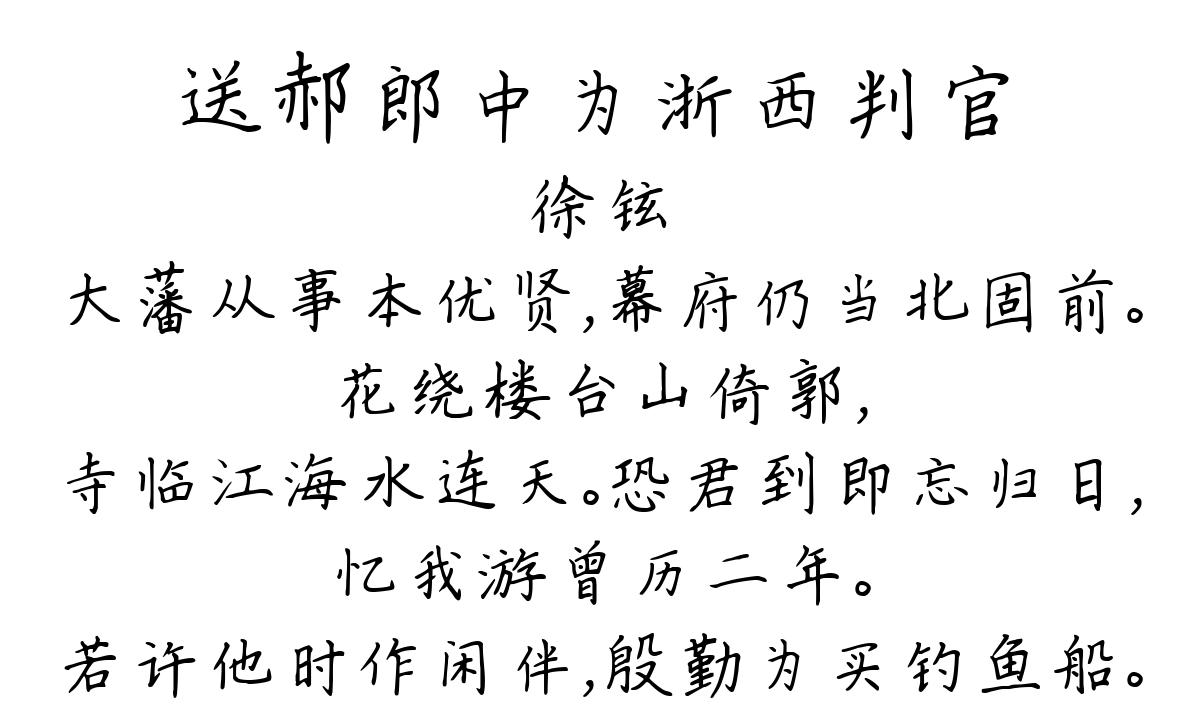 送郝郎中为浙西判官
徐铉
大藩从事本优贤,幕府仍当北固前。
花绕楼台山倚郭,
寺临江海水连天。恐君到即忘归日,
忆我游曾历二年。
若许他时作闲伴,殷勤为买钓鱼船。